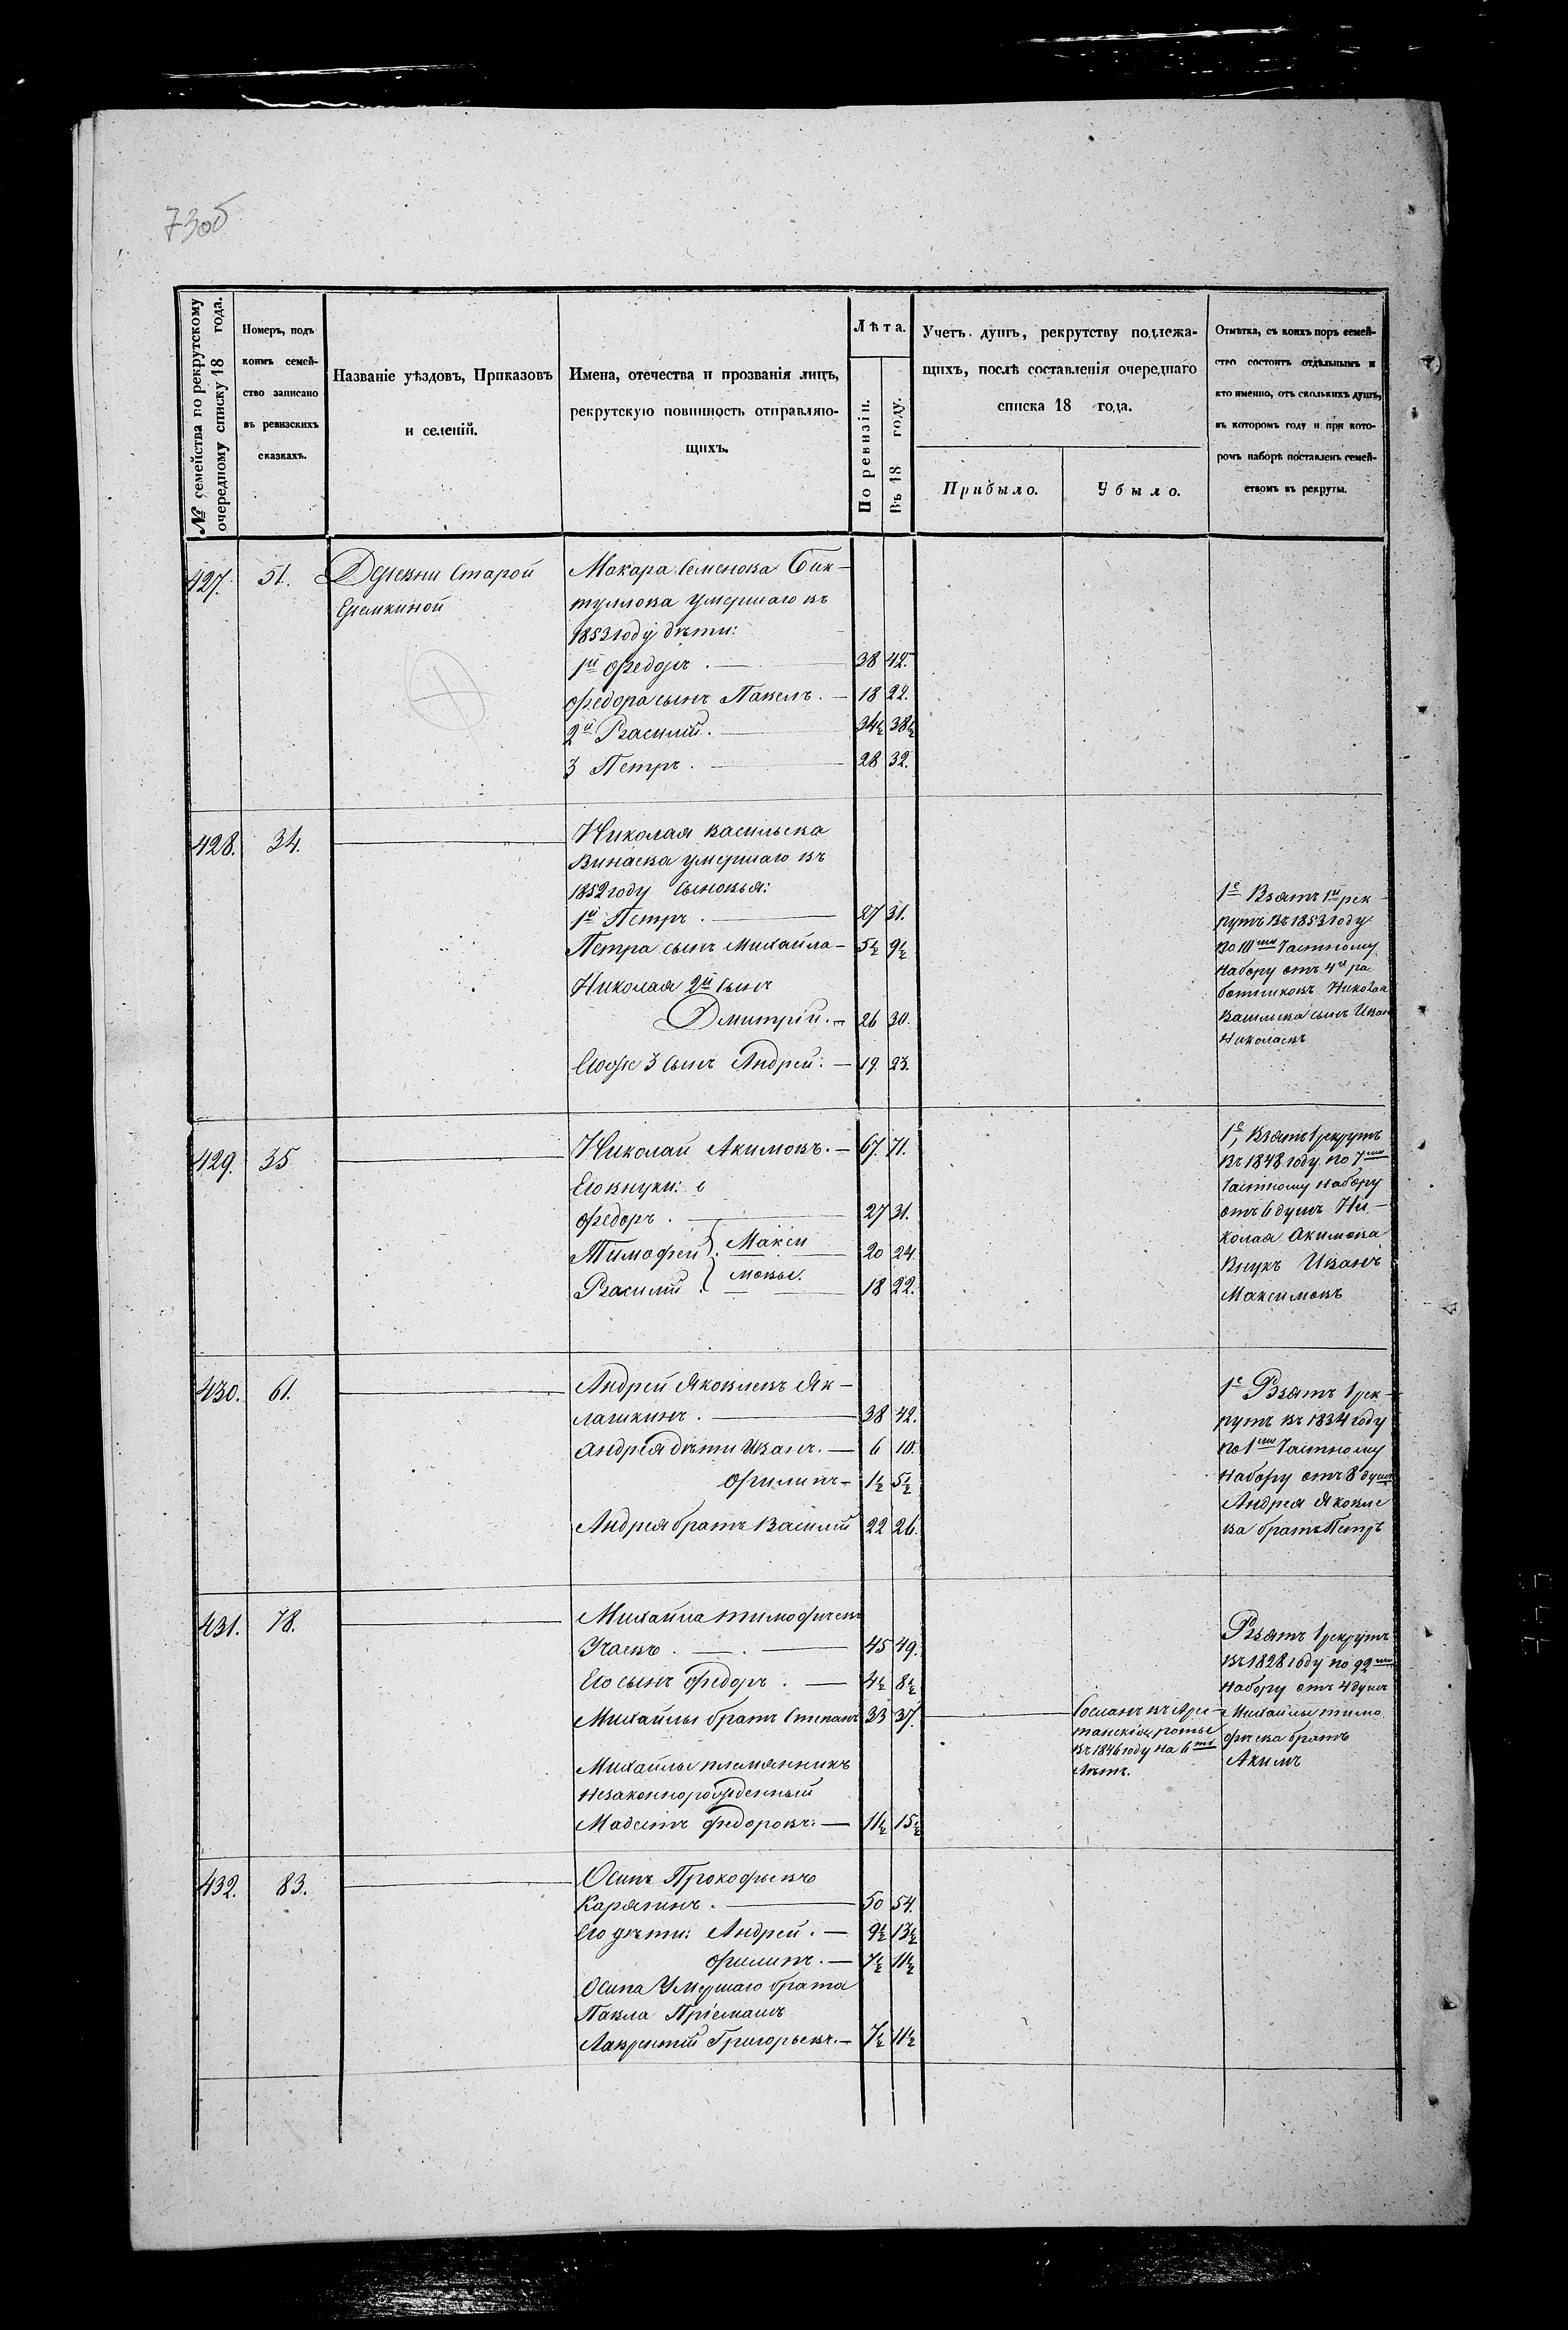 73об
№ семейства по рекрутскому очередному списку 18 года.
Номеръ, подъ коимъ семейство записано въ ревизскихъ сказкахъ.
Названіе уѣздовъ, Приказовъ и селеній.
Имена, отечества и прозванія лицъ, рекрутскую повинность отправляющихъ.
Лѣта.
По ревизіи.
Въ 18 году.
Учетъ душъ, рекрутству подлежащихъ, послѣ составленія очереднаго списка 18 года.
Прибыло.
Убыло.
Отмѣтка, съ коихъ поръ семейство состоитъ отдѣльнымъ и кто именно, отъ сколькихъ душъ, въ которомъ году и при которомъ наборѣ поставленъ семействомъ въ рекруты.
427. 51. Деревни Старой
Еремкиной
Макара Семенова Бик-
туллова умершаго въ
1853 году дѣти:
1й Федоръ. — 38 42.
Федора сынъ Павелъ. — 18 22.
2й Василий. — 34½ 38½
3 Петръ. — 28 32.
428. 34.
Николая васильева
Винаева умершаго въ
1852 году Сыновья:
1й Петръ. — 27 31.
Петра сынъ Михайла — 5½ 9½
Николая 2й Сынъ
Дмитрій. — 26 30.
Егоже 3 Сынъ Андрей. — 19. 23.
1е Взятъ 1й рек-
рутъ въ 1853 году
по 10му Частному
набору отъ 4х ра
ботниковъ Николая
Васильева сынъ Иван
Николаевъ
429. 35
Николай Акимовъ. — 67. 71.
Его внуки:
Федоръ. — 27 31.
Тимофей Макси 20 24.
Василий мовы. 18 22.
1е, Взятъ 1 рекрутъ
въ 1848 году по 7му
Частному набору
отъ 6 душъ Ни-
колая Акимова
Внукъ Иванъ
Максимовъ
430. 61.
Андрей Яковлевъ Як-
лашкинъ. — 38 42.
Андрея дѣти Иванъ. — 6 10.
Филипъ — 1½ 5½
Андрея братъ Василий 22 26.
1е Взятъ 1 рек-
рутъ въ 1834 году
по 1му Частному
набору отъ 8 душъ
Андрея Яковле
ва братъ Петръ
431. 78.
Михайла тимофѣевъ
Учаевъ. — 45 49.
Его сынъ Федоръ. — 4½ 8½
Михайлы братъ Степанъ 33 37.
Михайлы племянникъ
незаконнорожденный
Модестъ Федоровъ: — 11½ 15½
Сосланъ въ Аре-
танскія роты
въ 1846 году на 6ть
лѣтъ.
Взятъ 1 рекрутъ
въ 1828 году по 92му
набору отъ 4 душъ
Михайлы тимо
фѣева братъ
Акимъ
432. 83.
Осипъ Прокофьевъ
Карягинъ. — 50 54.
Его дѣти: Андрей. — 9½ 13½
Филипъ. — 7½ 11½
Осипа Умершаго брата
Павла Пріемышъ
Лаврентій Григорьевъ. — 7½ 11½